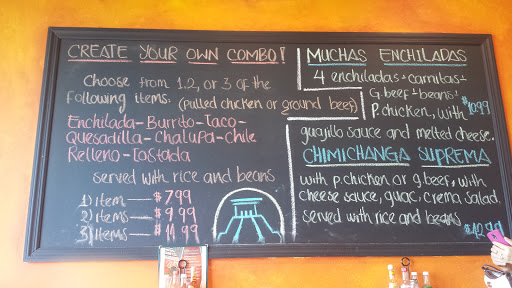 CREATE YOUR OWN COMBO!
Choose from 1,2, or 3 of the
following items. (pulled chicken or ground beef)
Enchilada-Burrito-Taco-
Quesadilla-Chalupa-Chile
Relleno-Tostada
served with rice and beans
1) item — $7.99
2) items — $9.99
3) items — $11.99
MUCHAS ENCHILADAS
4 enchiladas: carnitas+
G.beef+beans+
P.chicken, with $10.99
guajillo sauce and melted cheese.
CHIMICHANGA SUPREMA
with p.chicken or g.beef, with
cheese sauce, guac, crema, salad.
served with rice and beans
$12.99